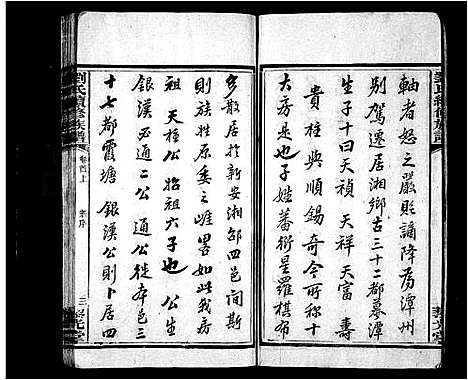 軸者怒之嚴貶謫降為潭州
別駕遷居湘鄉古三十二都墓潭
生子十曰天禎 天祥 天富 壽
貴柱與順錫奇今所称十
大房是也子姓蕃衍星羅棋布
多散居於新安湘邵四邑間斯
則族姓原委之崖畧如此我房
祖 天柱公 貽祖六子也 公生
銀漢必通二公 通公徙本邑三
十七都霞塘 銀漢公則卜居四
劉氏續修族譜
卷首上
三